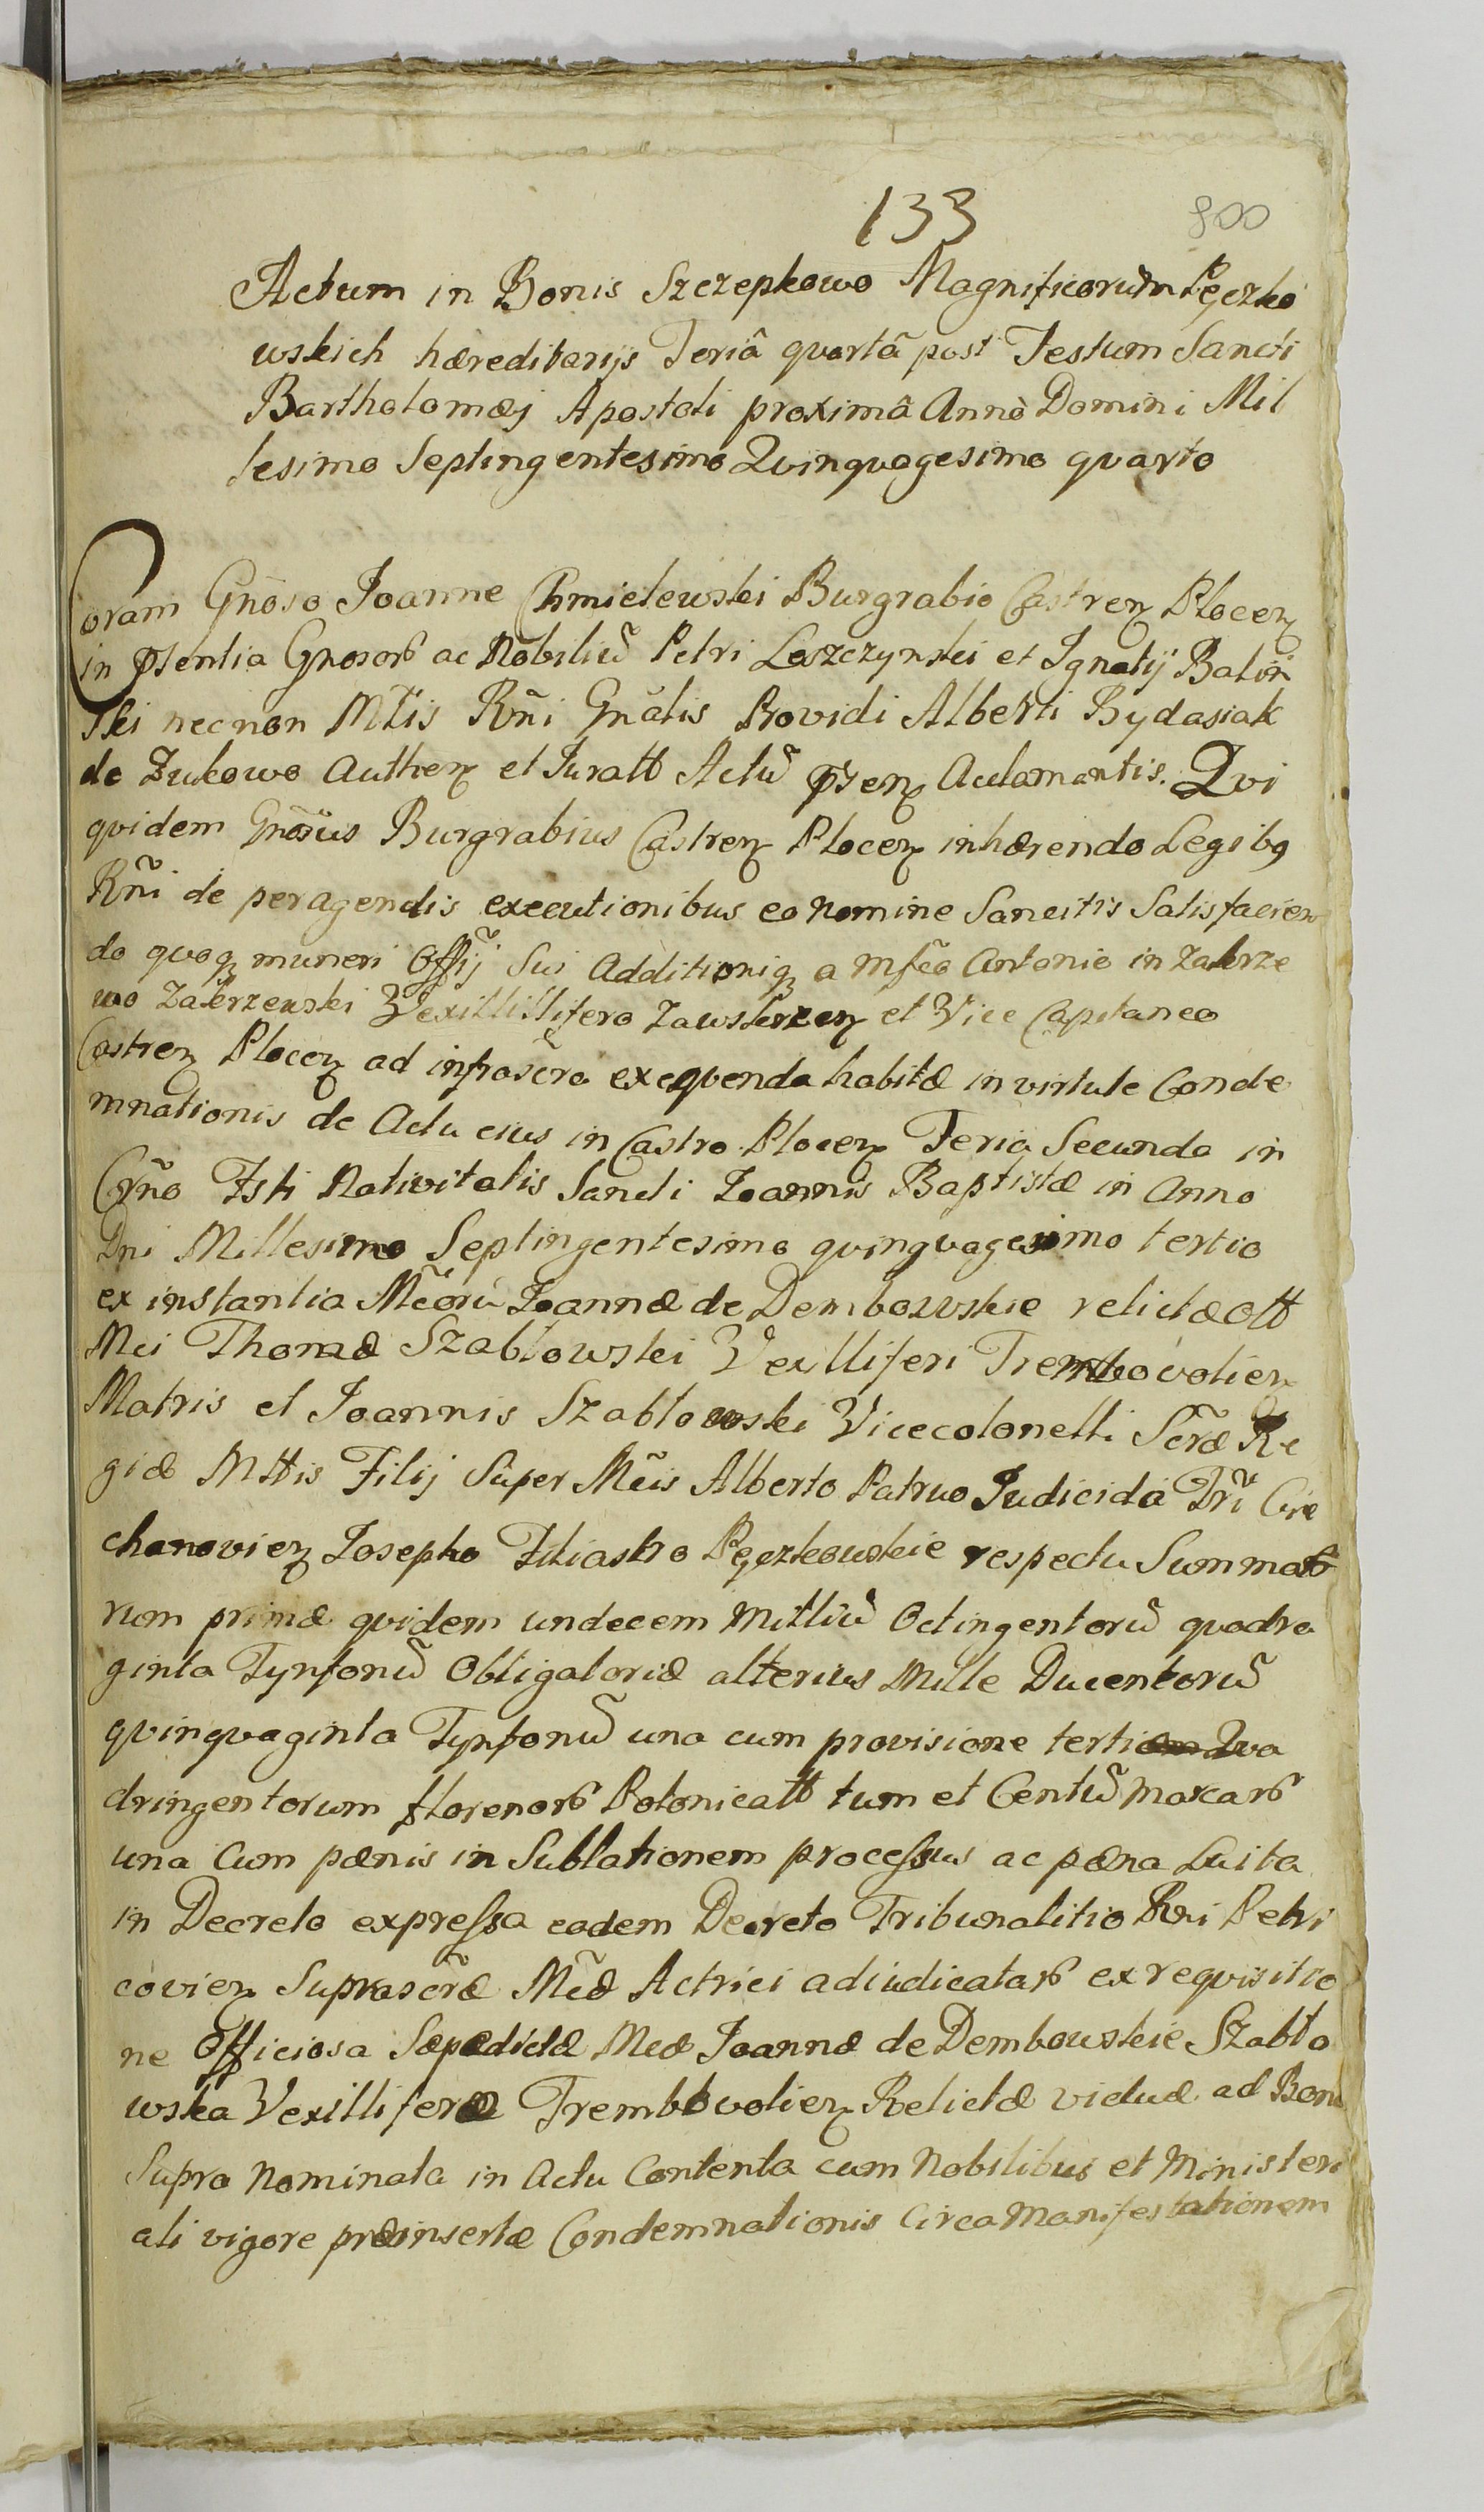 133 800
Actum in Bonis Szczepkowo Magnificorum Pęczko
wskich hæreditarijs Feriâ quartâ post Festum Sancti
Bartholomæj Apostoli proximâ Annò Domini Mil
lesimo Septingentesimo Quinquagesimo quarto
Coram Gnõso Joanne Chmielewski Burgrabio Castren Plocen
in Pñtentia Gnosorũ ac Nobiliũ Petri Leszczynski et Ignatij Batiń
ski necnon Mĩtis Rñi Gñalis Providi Alberti Bydasiak
de Zukowo Authen et Juratt Actũ Pñten Aclamantis. Qui
quidem Gnõsus Burgrabius Castren Plocen inhærendo Legibg
Rñi de peragendis executionibus eo nomine Sancitis Satisfacien
do quoq muneri Offĩj Sui Additioniq a Mfco Antonio in Zakrze
wo Zakrzewski Vexillillifero Zawskrzen et Vice Capitaneo
Castren Plocen ad infrascra exequenda habitæ in virtute Conde
mnationis de Actu eius in Castro Plocen Feria Secunda in
Crñno Fsti Nativitatis Sancti Joannis Baptistæ in Anno
Dni Millesimo Septingentesimo quinquagesimo tertio
ex instantia Mcorũ Joannæ de Dembowskie relictæ Olt
Mci Thomæ Szabłowski Vexlliferi Trembovolien
Matris et Joannis Szabłowski Vicecolonelli Scræ Re
giæ Mttis Filij Super Mcis Alberto Patruo Judicida Trĩ Cie
chanovien Josepho Filiastro Pęczkowskie respectu Summar
rum primæ quidem undecem Milliũ Octingentorũ quadra
ginta Tynfonũ Obligatoriæ alterius Mille Ducentorũ
quinquaginta Tynfonũ una cum provisione tertiæ Qva
dringentorum florenorũ Polonicatt tum et Centũ Marcarũ
una Cum pænis in Sublationem processus ac pæna Luita
in Decreto expressa eodem Decreto Tribunalitio Rni Petri
covien Suprascræ Mcæ Actrici adiudicatarũ ex requisitio
ne Officiosa Sæpedictæ Mcæ Joannæ de Dembowskie Szabło
wska Vexilliferæ Trembovolien Relictæ viduæ ad Bona
Supra Nominata in Actu Contenta cum Nobilibus et Ministeri
ali vigore præinsertæ Condemnationis Circa Manifestationem